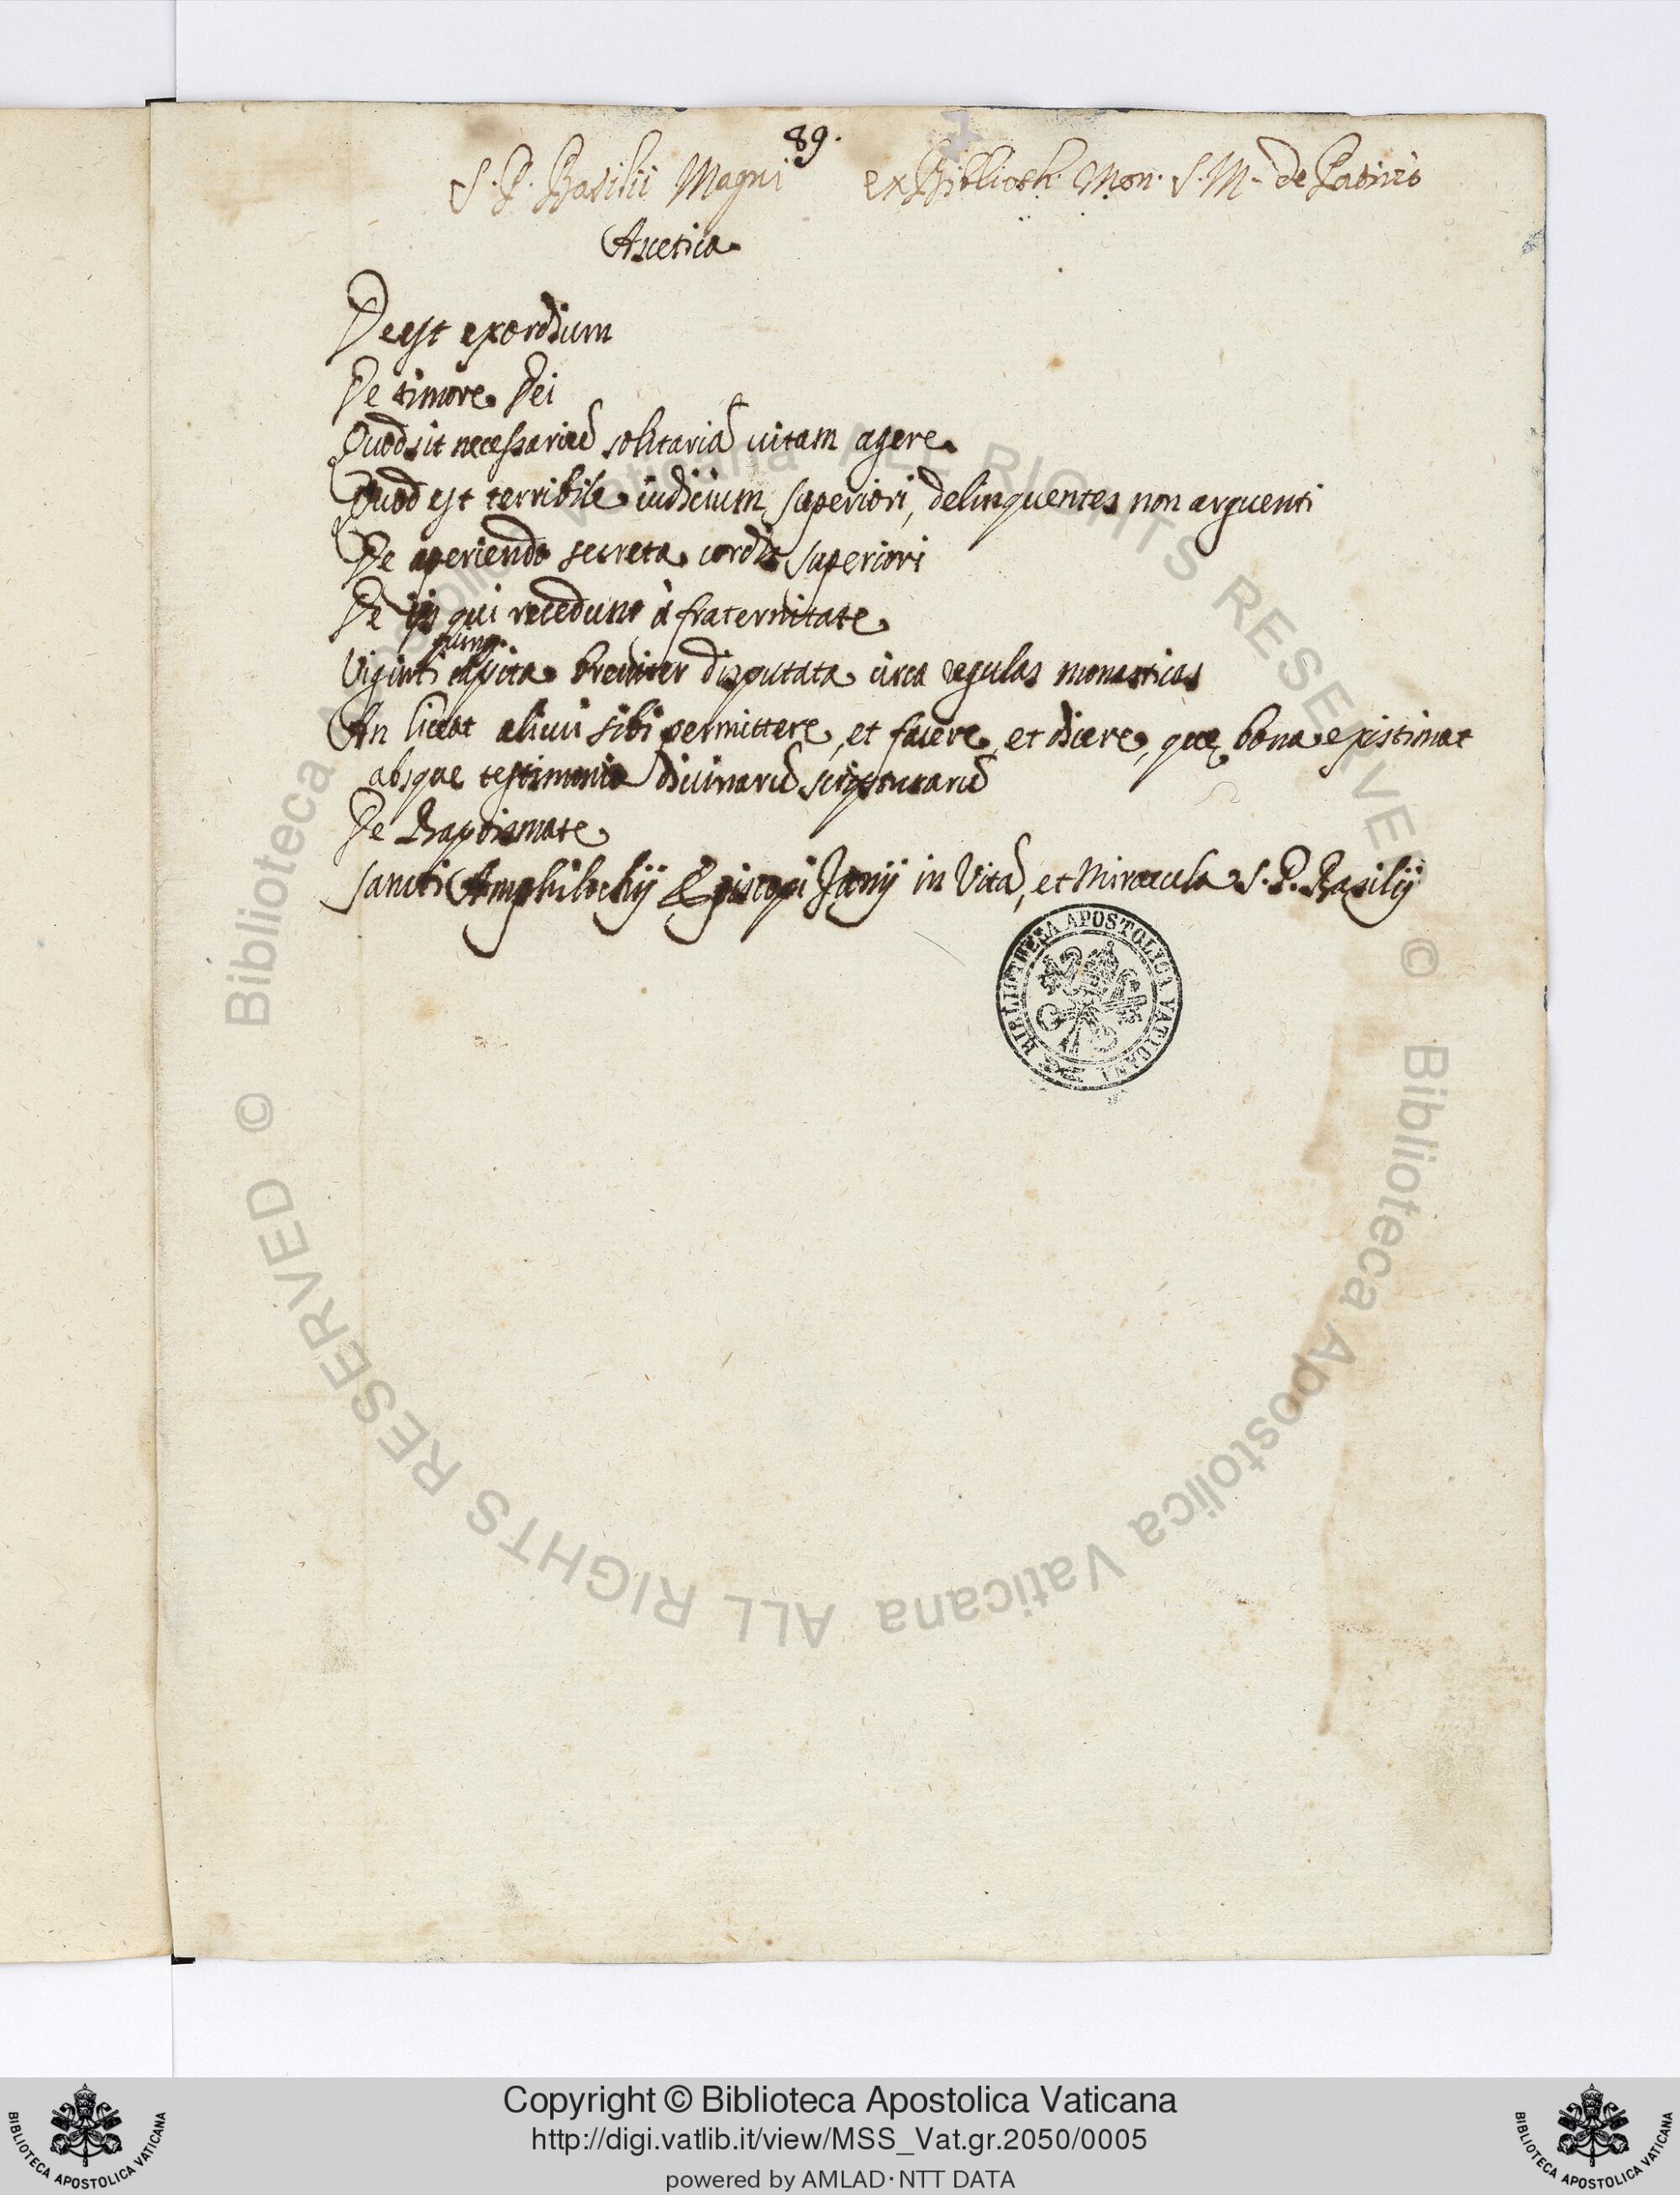 89.
S. P. Basilii Magni ex Biblioth. Mon. S. M. de Patiriò
Ascetica
Deest exordium
De timore Dei
Quod sit necessariũ solitariã vitam agere
Quod est terribile iudicium superiori, delinquentes non arguenti
De aperiendo secreta cordis superiori
De ijs qui recedunt à fraternitate
Viginti capita breviter disputata circa regulas monasticas
An liceat alicui sibi permittere, et facere, et dicere, quæ bona existimat
absque testimonio divinarũ scripturarũ
De Baptismate
Sancti Amphilochij Episcopi Iconij in Vitã, et Miracula S. P. Basilij
BIBLIOTHECA APOSTOLICA VATICANA
© Biblioteca Apostolica Vaticana ALL RIGHTS RESERVED
© Biblioteca Apostolica Vaticana ALL RIGHTS RESERVED
Copyright © Biblioteca Apostolica Vaticana
http://digi.vatlib.it/view/MSS_Vat.gr.2050/0005
powered by AMLAD·NTT DATA
BIBLIOTECA APOSTOLICA VATICANA
BIBLIOTECA APOSTOLICA VATICANA